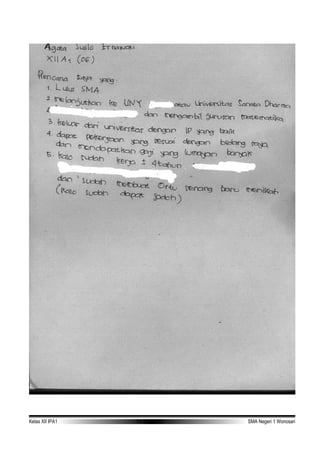 Agata Susilo Ernawati
XII A1 (06)
Rencana saya yang.
1. Lulus SMA
2. Melanjutkan ke UNY atau Universitas Sanata Dharma
dan mengambil jurusan matematika
3. Keluar dari universitas dengan IP yang baik
4. dapat pekerjaan yang sesuai dengan bidang saya
dan mendapatkan gaji yang lumayan banyak
5. Kalo sudah kerja ± 4 tahun
dan sudah membuat senang baru menikah
(Kalo sudah dapat jodoh)
Kelas XII IPA1 SMA Negeri 1 Wonosari